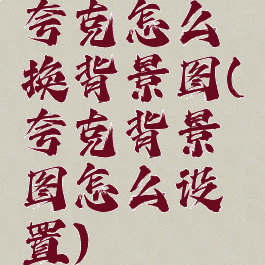 夸克怎么
换背景图(
夸克背景
图怎么设
置)